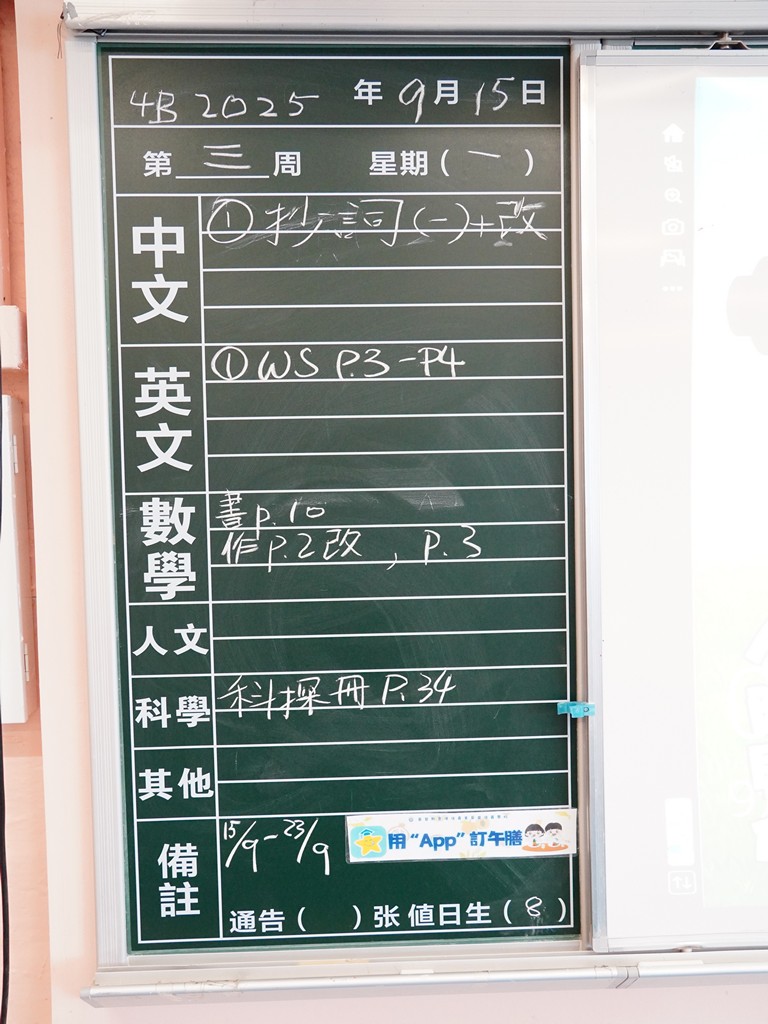 4B 2025 年 9 月 15 日
第 三 周 星期 ( 一 )
中文
① 抄詞(一)+改
英文
① WS P.3-P4
數學
書p.10
作p.2改, p.3
人文
科學
科探冊 P.34
其他
備註
15/9-23/9
用 “App” 訂午膳
通告 ( ) 张 值日生 ( 8 )